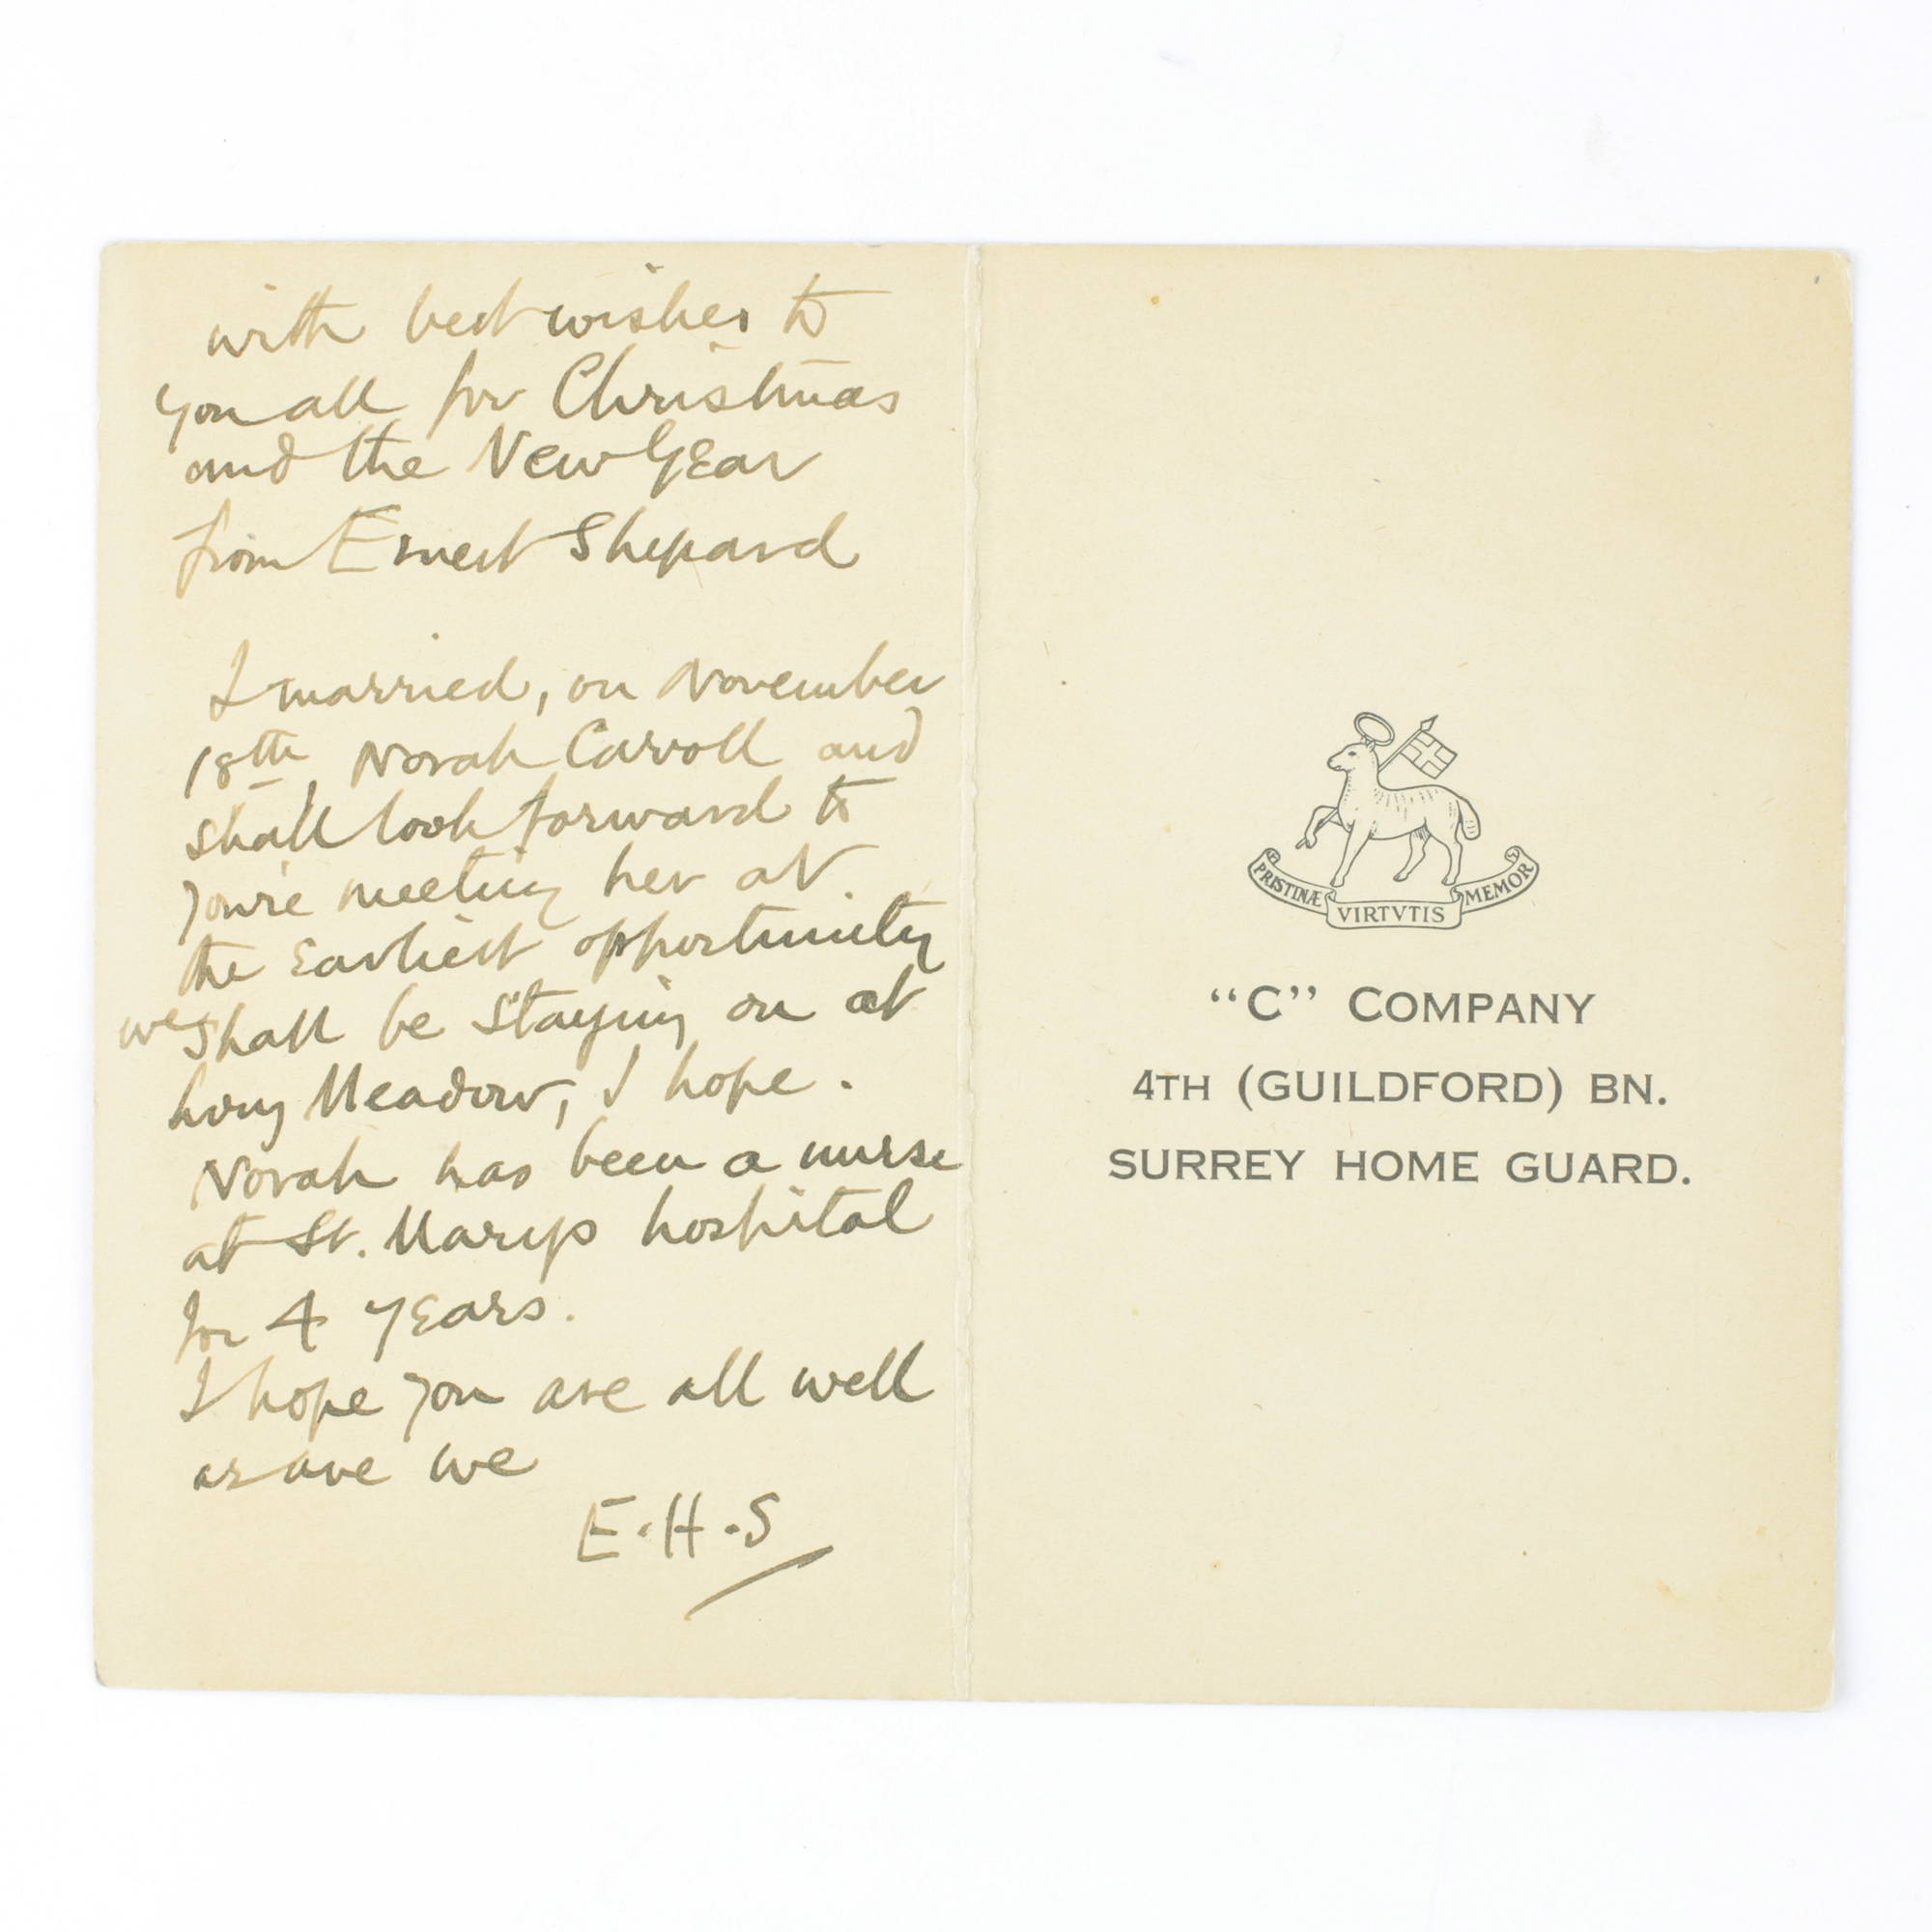 with best wishes to
you all for Christmas
and the New Year
from Ernest Shepard
I married, on November
18th, Norah Carroll and
shall look forward to
your'e meeting her at
the earliest opportunity
we shall be staying on at
Long Meadow, I hope.
Norah has been a nurse
at St. Marys hospital
for 4 years.
I hope you are all well
as are we
E.H.S
PRISTINÆ VIRTVTIS MEMOR
“C” COMPANY
4TH (GUILDFORD) BN.
SURREY HOME GUARD.